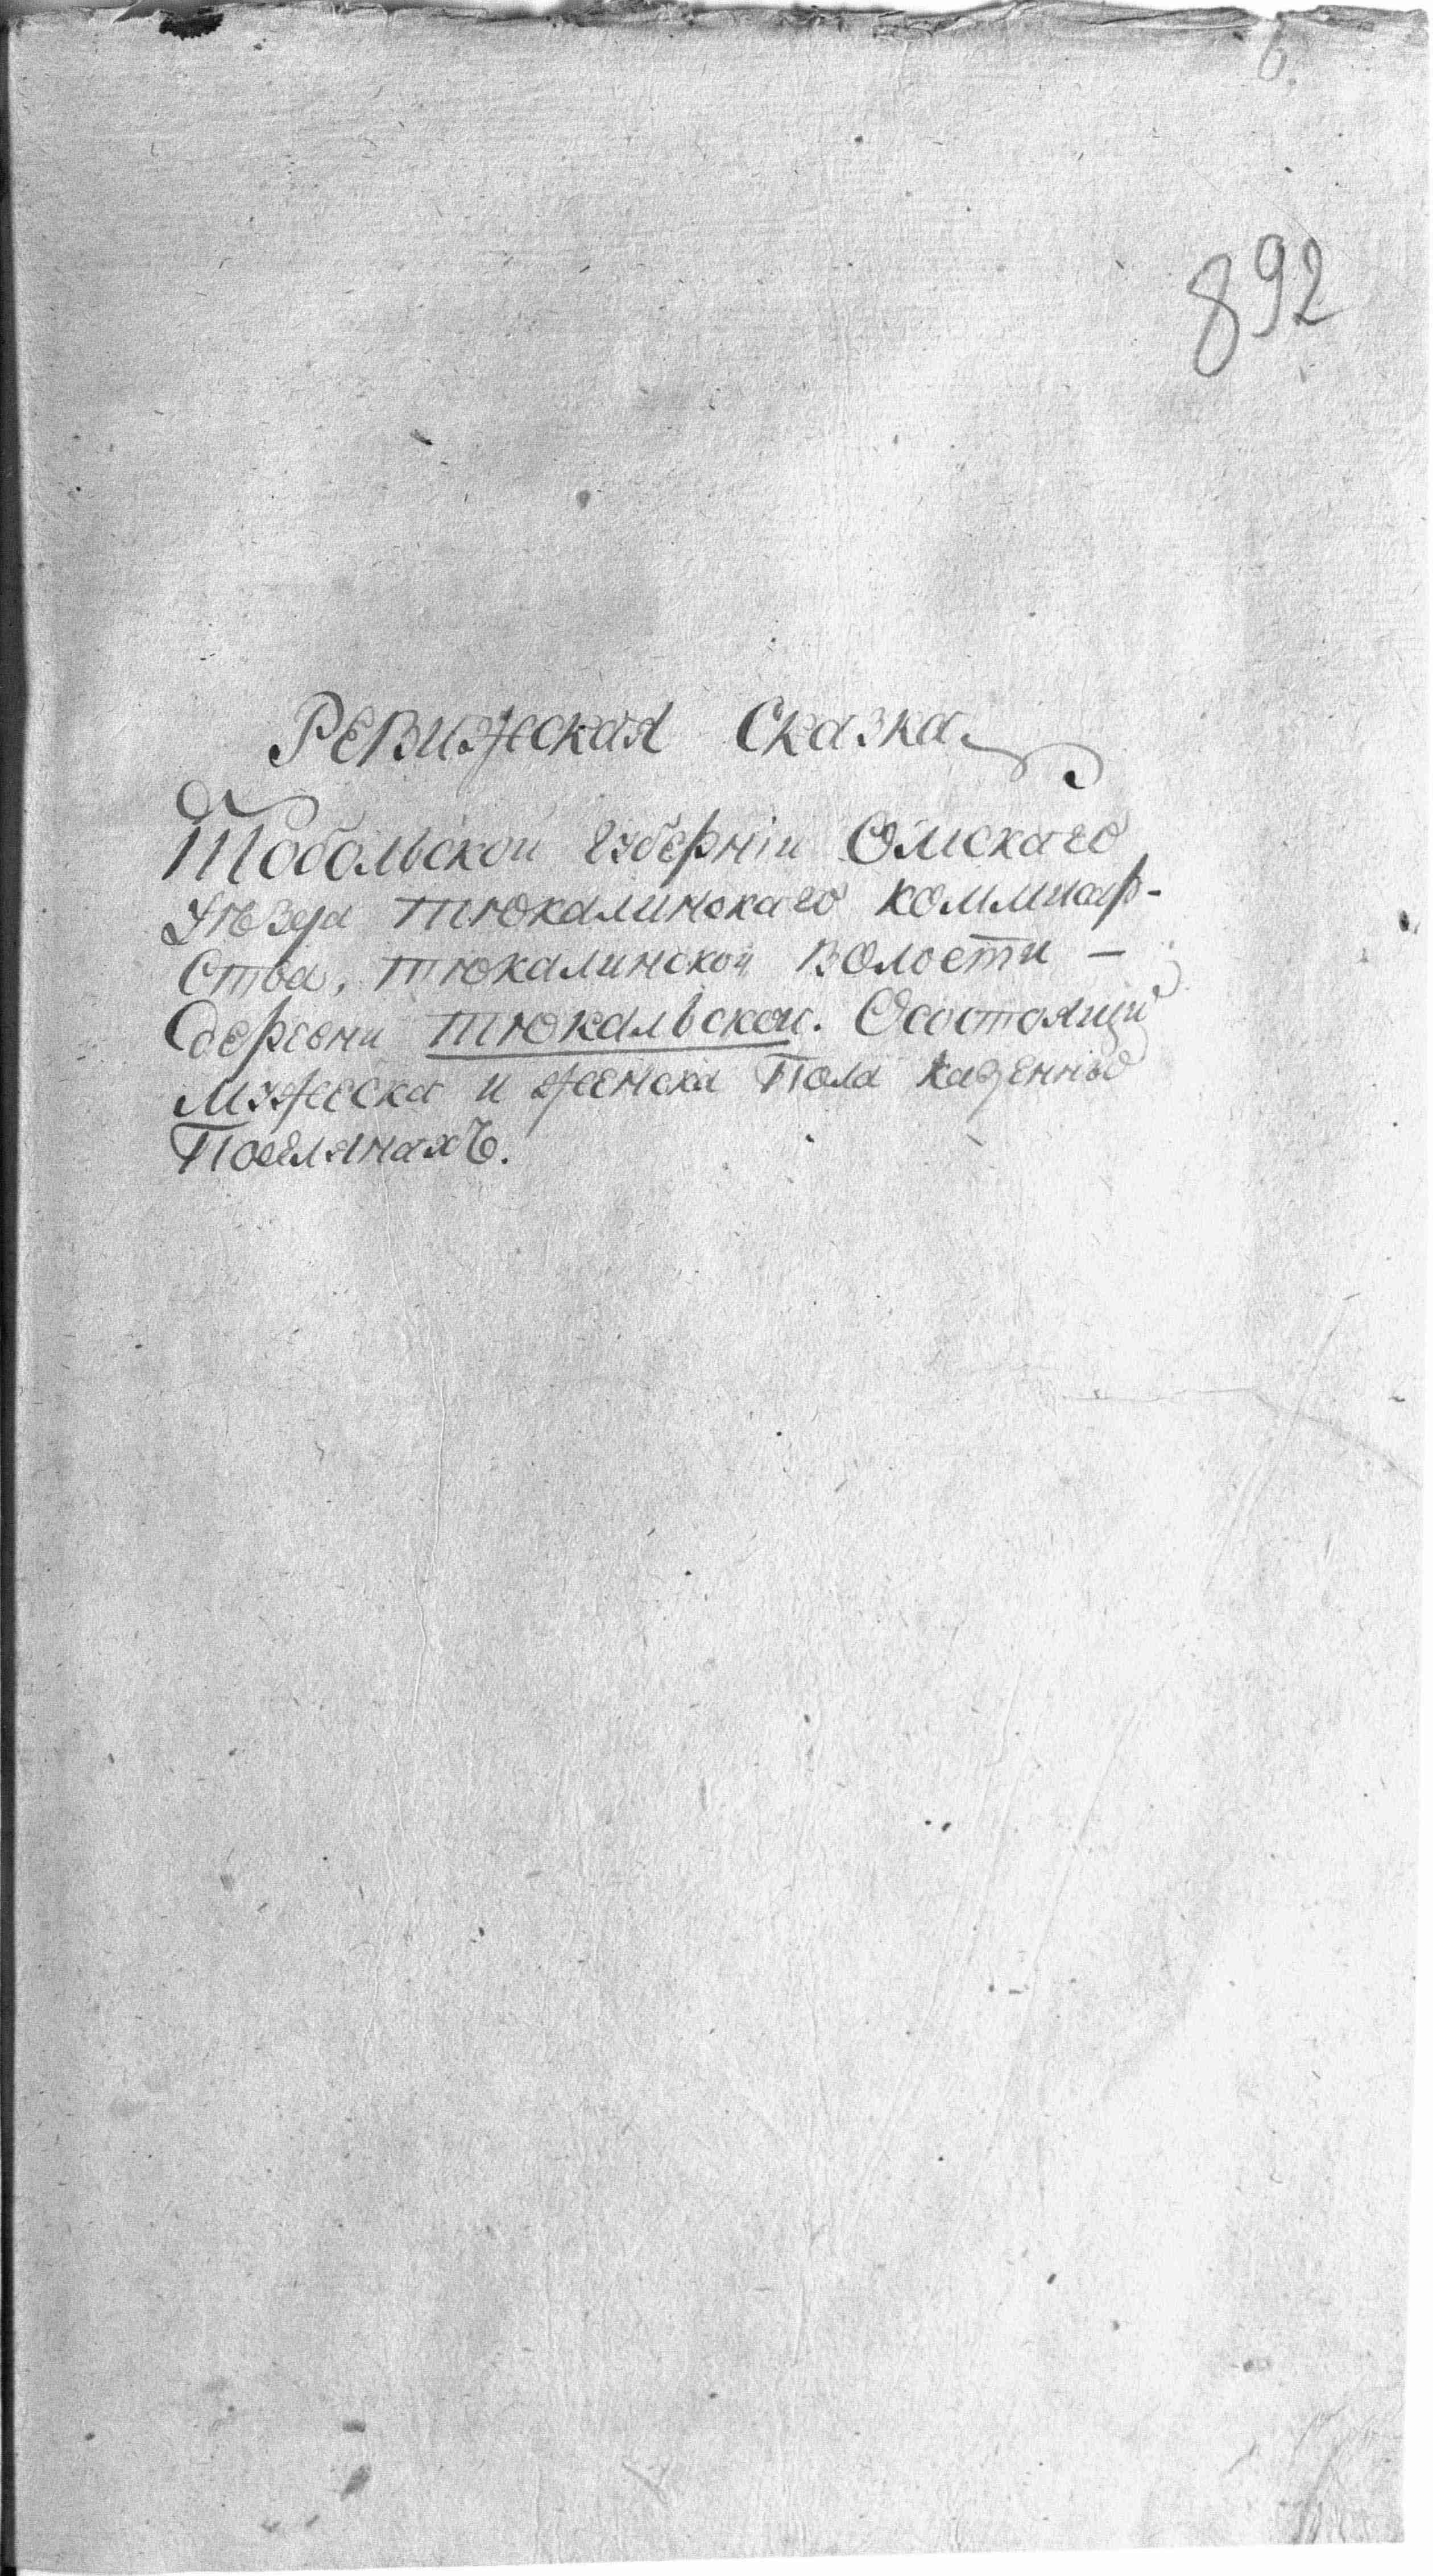 892
Ревижская Сказка
Тобольской губернiи Омскаго
уѣзда тюкалинскаго коммисар-
ства, тюкалинской волости —
деревни тюкальской. Осостоящи
мужеска и женска Пола казенныхъ
Поселянахъ.